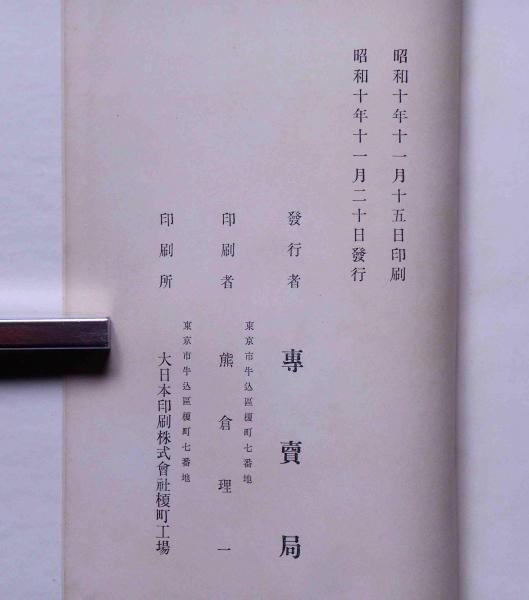 昭和十年十一月十五日印刷
昭和十年十一月二十日發行
發行者 專賣局
東京市牛込區榎町七番地
印刷者 熊倉理一
東京市牛込區榎町七番地
印刷所 大日本印刷株式會社榎町工場